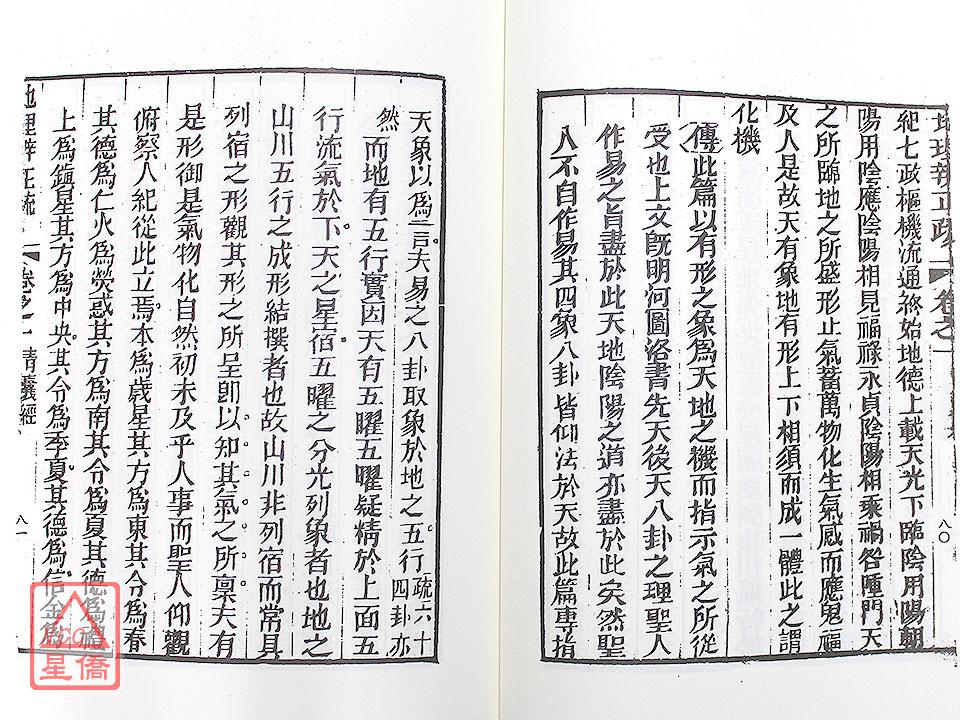 地理辨正疏 卷之一 八〇
紀七政樞機流通終始地德上載天光下臨陰用陽朝
陽用陰應陰陽相見福祿永貞陰陽相乘禍咎踵門天
之所臨地之所盛形止氣蓄萬物化生氣感而應鬼福
及人是故天有象地有形上下相須而成一體此之謂
化機
傳此篇以有形之象為天地之機而指示氣之所從
受也上文既明河圖洛書先天後天八卦之理聖人
作易之旨盡於此天地陰陽之道亦盡於此矣然聖
人不自作易其四象八卦皆仰法於天故此篇專指
天象以為言夫易之八卦取象於地之五行疏六十四卦亦
然而地有五行實因天有五曜五曜疑精於上面五
行流氣於下天之星宿五曜之分光列象者也地之
山川五行之成形結撰者也故山川非列宿而常具
列宿之形觀其形之所呈卽以知其氣之所稟夫有
是形御是氣物化自然初未及乎人事而聖人仰觀
俯察人紀從此立焉本為歲星其方為東其令為春
其德為仁火為熒惑其方為南其令為夏其德為禮
上為鎮星其方為中央其令為季夏其德為信金為
地理辨正疏 卷之一 青囊經 八一
星僑